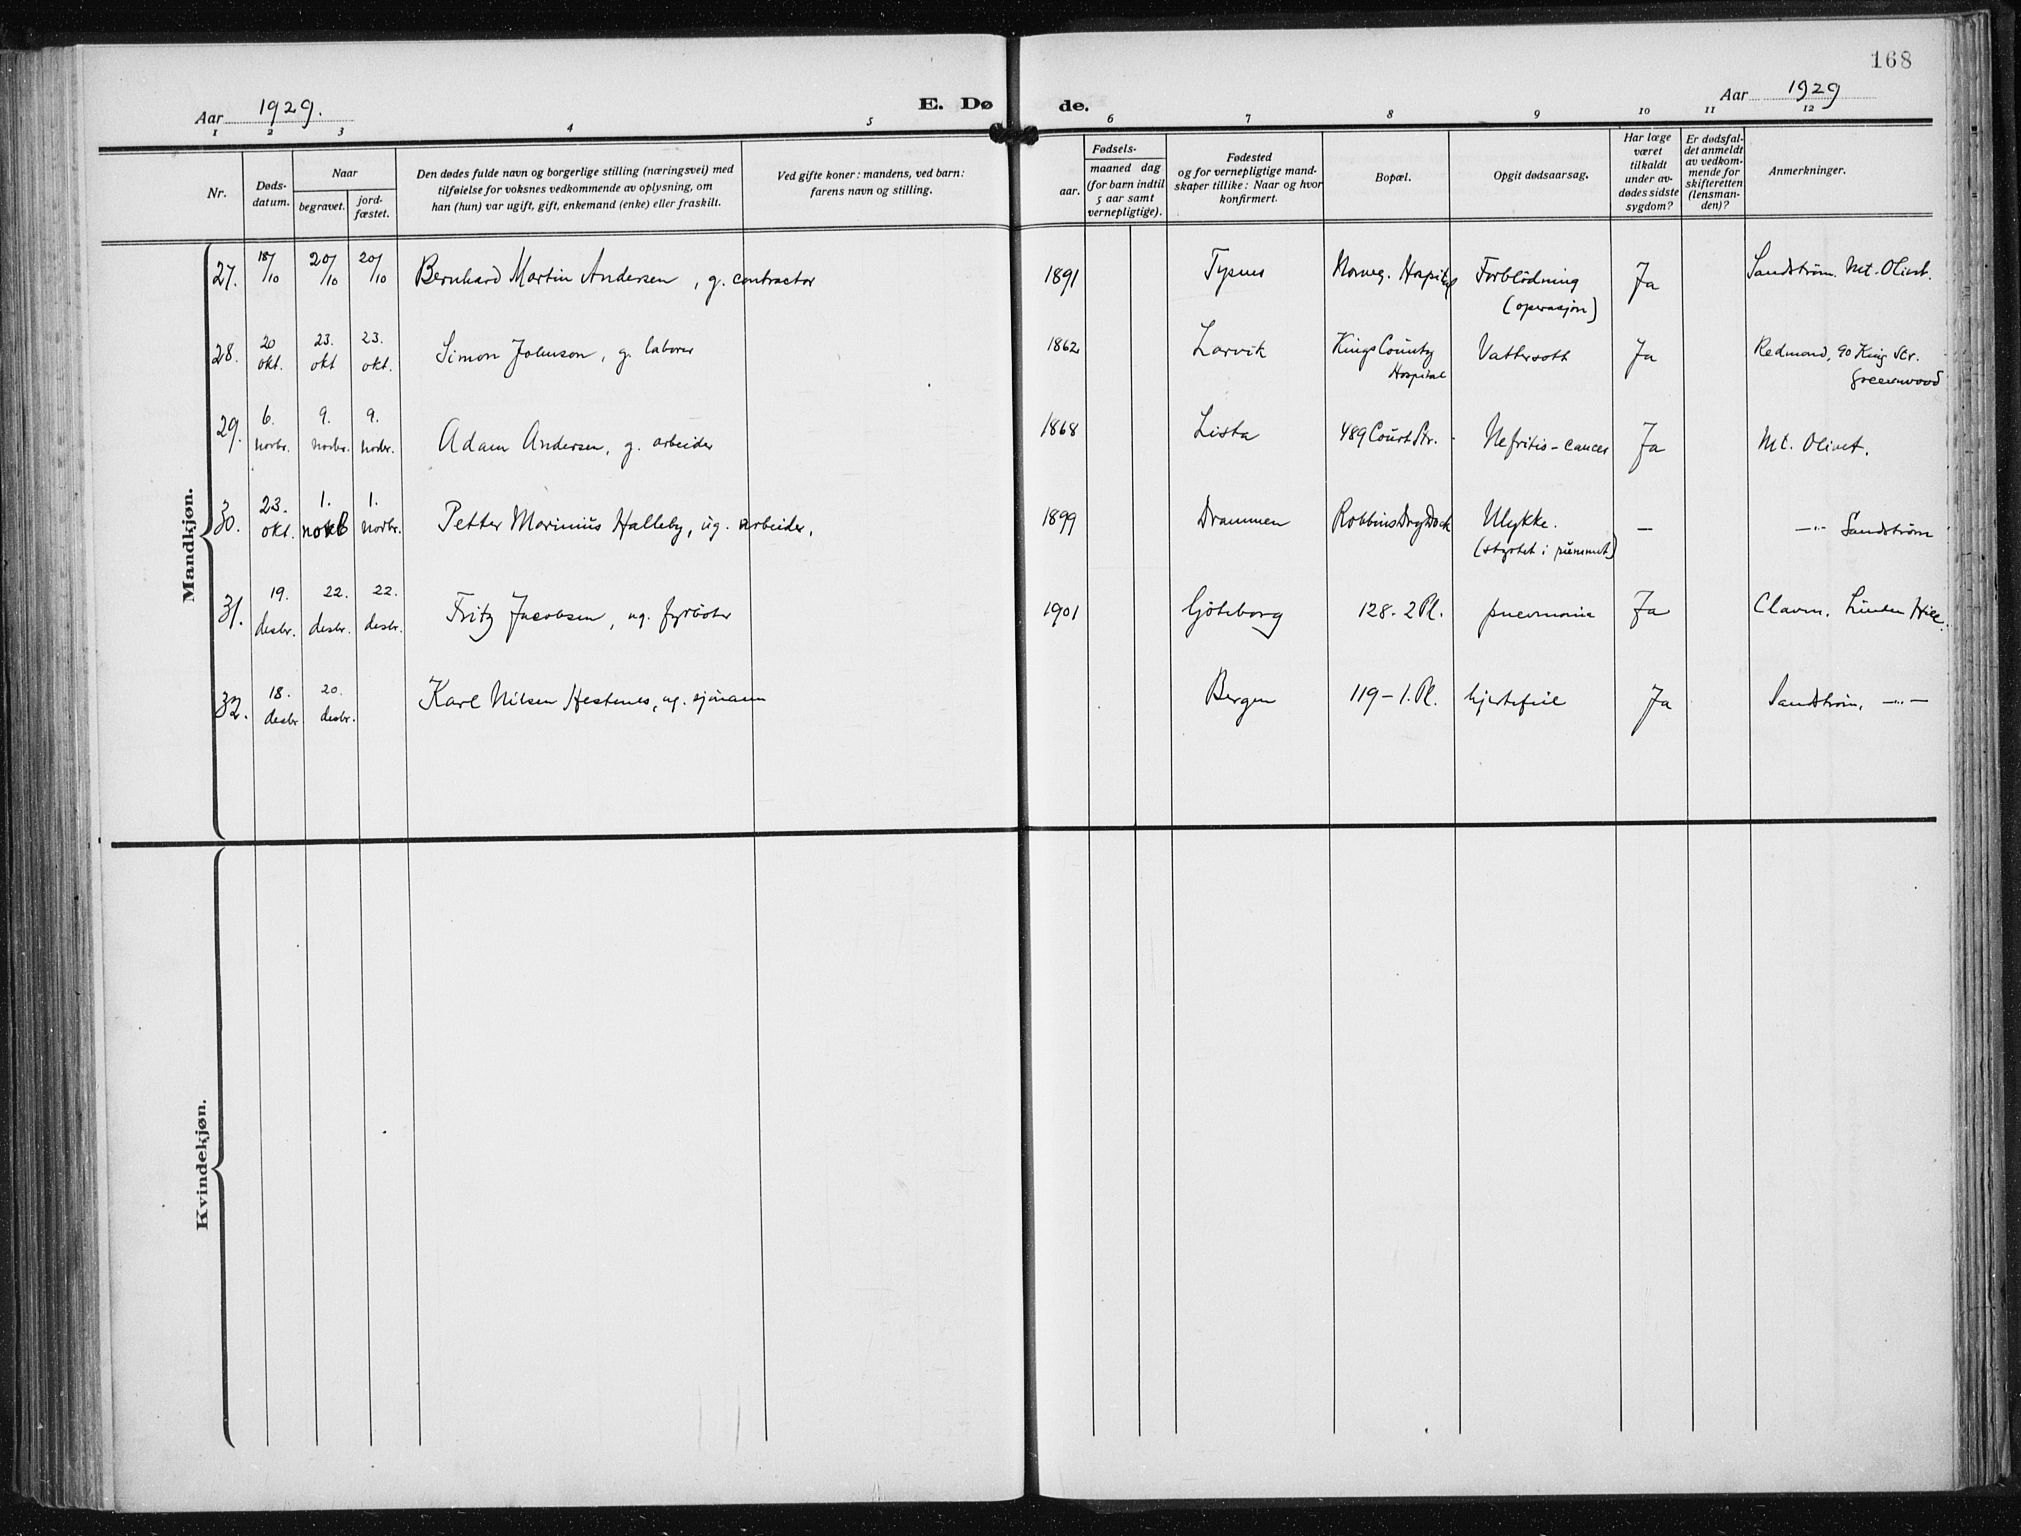 168
Aar 1929.
E. Dø de.
Aar 1929
1 2 3 4 5 6 7 8 9 10 11 12
Nr.
Døds-
datum.
Naar
begravet.
jord-
fæstet.
Den dødes fulde navn og borgerlige stilling (næringsvei) med
tilføielse for voksnes vedkommende av oplysning, om
han (hun) var ugift, gift, enkemand (enke) eller fraskilt.
Ved gifte koner: mandens, ved barn:
farens navn og stilling.
Fødsels-
aar.
maaned dag
(for barn indtil
5 aar samt
vernepligtige).
Fødested
og for vernepligtige mand-
skaper tillike: Naar og hvor
konfirmert.
Bopæl.
Opgit dødsaarsag.
Har læge
været
tilkaldt
under av-
dødes sidste
sygdom?
Er dødsfal-
det anmeldt
av vedkom-
mende for
skifteretten
(lensman-
den)?
Anmerkninger.
Mandkjøn.
27. 18/10 20/10 20/10 Bernhard Martin Andersen, g. contractor 1891 Norweg. Hospital Forblödning Ja Sandström. Mt. Olivet.
(operasjon)
28. 20 23. 23. Simon Johnson, g. laborer 1862 Larvik Kings County Vattersott Ja Redmond, 90 King Str.
okt. okt okt. Hospital Greenwood
29. 6. 9. 9. Adam Andersen, g. arbeider 1868 Lista 489 Court Str. Nefritis - cancer Ja Mt. Olivet.
novbr. novbr. novbr.
30. 23. 1. 1. Petter Marinius Halleby, ug. arbeider, 1899 Drammen Robbins Dry Dock Ulykke. — —"— Sandström
okt. novbr. (styrtet i
31. 19. 22. 22. Fritz Jacobsen, ug. fyrböter 1901 Göteborg 128 - 2 Pl. pneumonie Ja Linden Hill.
desbr. desbr. desbr.
32. 18. 20. Karl Nilsen Hestenes, ug. sjömann Bergen 119 - 1. Pl. hjertefeil Ja Sandström, —"—
desbr desbr.
Kvindekjøn.